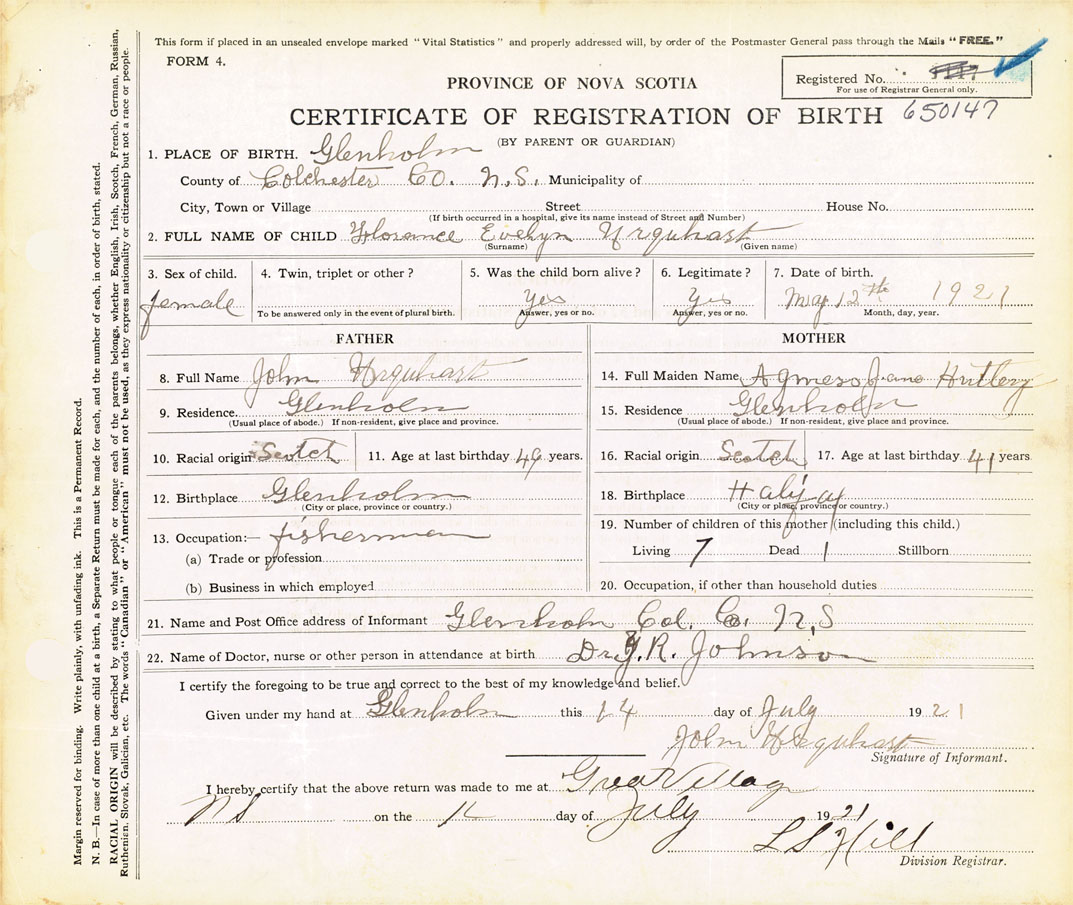 This form if placed in an unsealed envelope marked "Vital Statistics" and properly addressed will, by order of the Postmaster General pass through the Mails "FREE."
FORM 4.
Registered No.
For use of Registrar General only.
PROVINCE OF NOVA SCOTIA
CERTIFICATE OF REGISTRATION OF BIRTH 650147
(BY PARENT OR GUARDIAN)
1. PLACE OF BIRTH. Glenholm
County of Colchester Co. N.S. Municipality of
City, Town or Village Street House No.
(If birth occurred in a hospital, give its name instead of Street and Number)
2. FULL NAME OF CHILD Florance Evelyn Urquhart
(Surname) (Given name)
3. Sex of child. 4. Twin, triplet or other? 5. Was the child born alive? 6. Legitimate? 7. Date of birth.
female Yes Yes May 12th 1921
To be answered only in the event of plural birth. Answer, yes or no. Answer, yes or no. Month, day, year.
FATHER MOTHER
8. Full Name John Urquhart 14. Full Maiden Name Jane
9. Residence. Glenholm 15. Residence Glenholm
(Usual place of abode.) If non-resident, give place and province. (Usual place of abode.) If non-resident, give place and province.
10. Racial origin Scotch 11. Age at last birthday 49 years. 16. Racial origin Scotch 17. Age at last birthday 41 years
12. Birthplace Glenholm 18. Birthplace
(City or place, province or country.) (City or place, province or country.)
13. Occupation:— fisherman 19. Number of children of this mother (including this child.)
(a) Trade or profession Living 7 Dead 1 Stillborn
(b) Business in which employed 20. Occupation, if other than household duties
21. Name and Post Office address of Informant Glenholm Col. Co. N,S
22. Name of Doctor, nurse or other person in attendance at birth Dr R. Johnson
I certify the foregoing to be true and correct to the best of my knowledge and belief.
Given under my hand at Glenholm this 14 day of July 1921
John Urquhart
Signature of Informant.
I hereby certify that the above return was made to me at Great Village
NS on the day of July 1921
L S Hill
Division Registrar.
Margin reserved for binding. Write plainly, with unfading ink. This is a Permanent Record.
N. B.—In case of more than one child at a birth, a Separate Return must be made for each, and the number of each, in order of birth, stated.
RACIAL ORIGIN will be described by stating to what people or tongue each of the parents belongs, whether English, Irish, Scotch, French, German, Russian,
Ruthenian, Slovak, Galician, etc. The words "Canadian" or "American" must not be used, as they express nationality or citizenship but not a race or people.